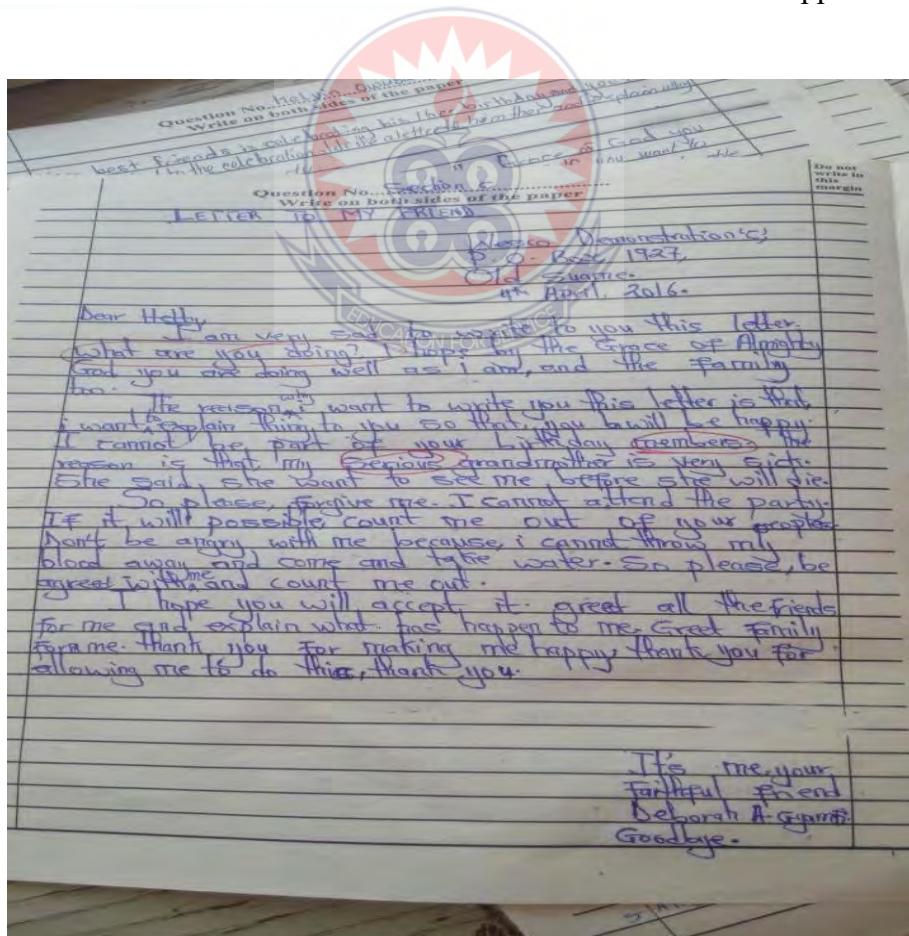 Question No. Helyn
Write on both sides of the paper
best friends is celebrating his/her birthday and
in the celebration. Write a letter to him/her and explain why
Grace of God you
you want to
Do not
write in
this
margin
Question No. Section C
Write on both sides of the paper
LETTER TO MY FRIEND
Wesco Demonstration 'C',
P. O. Box 1927,
Old Suame.
4th April, 2016.
Dear Hetty,
I am very sad to write to you this letter.
What are you doing? I hope by the Grace of Almighty
God you are doing well as i am, and the family
too.
The reason why i want to write you this letter is that,
i want to explain thing to you so that, you will be happy.
I cannot be part of your birthday members. the
reason is that my serious grandmother is very sick.
She said, she want to see me, before she will die.
So please, forgive me. I cannot attend the party.
If it will possible, count me out of your peoples.
Don't be angry with me because, i cannot throw my
blood away and come and take water. So please, be
agreed with me and count me out.
I hope you will accept it. greet all the friends
for me and explain what has happen to me. Greet family
for me. thank you for making me happy, thank you for
allowing me to do this, thank you.
It's me, your
faithful friend
Deborah A. Gyamfi.
Goodbye.
EDUCATION FOR SERVICE